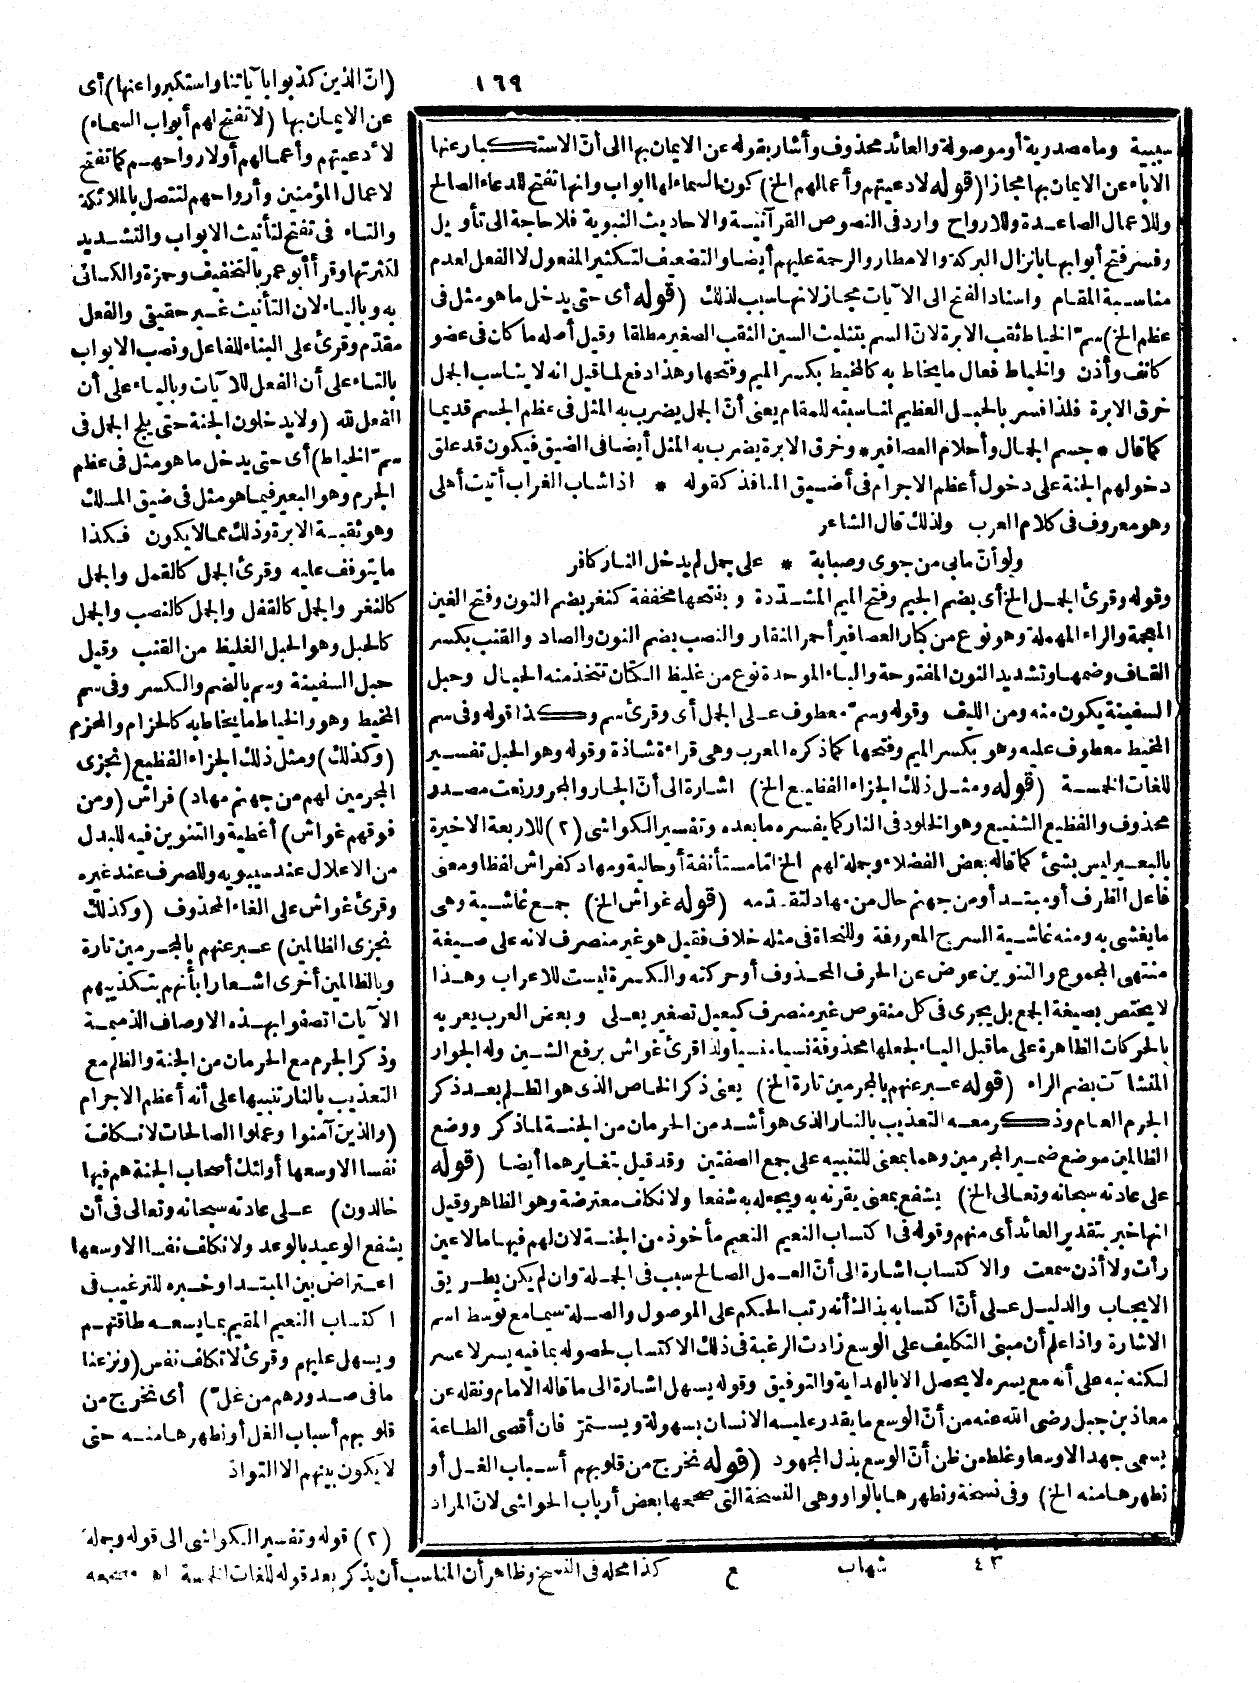 ١٦٩
سببية وما مصدرية أو موصولة والعائد محذوف وأشار بقوله عن الايمان بها الى أنّ الاستكبار عنها
الاباء عن الايمان بها مجازا (قوله لادعيتهم وأعمالهم الخ) كون السماء لها ابواب وانها تفتح للدعاء الصالح
وللاعمال الصاعدة وللارواح وارد فى النصوص القرآنية والاحاديث النبوية فلا حاجة الى تأويل
وفسر فتح أبوابها بانزال البركة والامطار والرحمة عليهم أيضا والتضعيف لتكثير المفعول لا الفعل لعدم
مناسبة المقام واسناد الفتح الى الآيات مجاز لانها سبب لذلك (قوله أى حتى يدخل ما هو مثل فى
عظم الخ) سمّ الخياط ثقب الابرة لانّ السم بتثليث السين الثقب الصغير مطلقا وقيل أصله ما كان فى عضو
كانف وأذن والخياط فعال ما يخاط به كالمخيط بكسر الميم وفتحها وهذا دفع لما قيل انه لا يناسب الجمل
خرق الابرة فلذا فسر بالحبل العظيم لمناسبته للمقام يعنى أنّ الجمل يضرب به المثل فى عظم الجسم قديما
كما قال * جسم الجمال وأحلام العصافير * وخرق الابرة يضرب به المثل أيضا فى الضيق فيكون قد علق
دخولهم الجنة على دخول أعظم الاجرام فى أضيق المنافذ كقوله * اذا شاب الغراب أتيت أهلى
وهو معروف فى كلام العرب ولذلك قال الشاعر
ولو أنّ ما بى من جوى وصبابة * على جمل لم يدخل النار كافر
وقوله وقرئ الجمل الخ أى بضم الجيم وفتح الميم المشدّدة وبفتحها مخففة كنغر بضم النون وفتح الغين
المعجمة والراء المهملة وهو نوع من كبار العصافير أحمر المنقار والنصب بضم النون والصاد والقنب بكسر
القاف وضمها وتشديد النون المفتوحة والباء الموحدة نوع من غليظ الكتان تتخذ منه الحبال وحبل
السفينة يكون منه ومن الليف وقوله وسمّ معطوف على الجمل أى وقرئ سم وكذا قوله وفى سم
المخيط معطوف عليه وهو بكسر الميم وفتحها كما ذكره المعرب وهى قراءة شاذة وقوله وهو الحبل تفسير
للغات الخمسة (قوله ومثل ذلك الجزاء الفظيع الخ) اشارة الى أنّ الجار والمجرور نعت مصدر
محذوف والفظيع الشنيع وهو الخلود فى النار كما يفسره ما بعده وتفسير الكواشى (٢) للاربعة الاخيرة
بالبعير ليس بشئ كما قاله بعض الفضلاء وجملة لهم الخ امّا مستأنفة أو حالية ومهاد كفراش لفظا ومعنى
فاعل الظرف أو مبتدأ ومن جهنم حال من مهاد لتقدّمه (قوله غواش الخ) جمع غاشية وهى
ما يغشى به ومنه غاشية السرج المعروفة وللنحاة فى مثله خلاف فقيل هو غير منصرف لانه على صيغة
منتهى المجموع والتنوين عوض عن الحرف المحذوف أو حركته والكسرة ليست للاعراب وهذا
لا يختص بصيغة الجمع بل يجرى فى كل منقوص غير منصرف كيعيل تصغير يعلى وبعض العرب يعربه
بالحركات الظاهرة على ما قبل الياء لجعلها محذوفة نسيا منسيا ولذا قرئ غواش برفع الشين وله الجوار
المنشآت بضم الراء (قوله عبر عنهم بالمجرمين تارة الخ) يعنى ذكر الخاص الذى هو الظلم بعد ذكر
الجرم العام وذكر معه التعذيب بالنار الذى هو أشد من الحرمان من الجنة لما ذكر ووضع
الظالمين موضع ضمير المجرمين وهما بمعنى للتنبيه على جمع الصفتين وقد قيل بتغايرهما أيضا (قوله
على عادته سبحانه وتعالى الخ) يشفع بمعنى يقرنه به ويجعله به شفعا ولا نكلف معترضة وهو الظاهر وقيل
انها خبر بتقدير العائد أى منهم وقوله فى اكتساب النعيم النعيم مأخوذ من الجنة لان لهم فيها ما لا عين
رأت ولا أذن سمعت والاكتساب اشارة الى أنّ العمل الصالح سبب فى الجملة وان لم يكن بطريق
الايجاب والدليل على أنّ اكتسابه بذلك أنه رتب الحكم على الموصول والصلة سيما مع توسط اسم
الاشارة واذا علم أن مبنى التكليف على الوسع زادت الرغبة فى ذلك الاكتساب لحصوله بما فيه يسر لا عسر
لكنه نبه على أنه مع يسره لا يحصل الا بالهداية والتوفيق وقوله يسهل اشارة الى ما قاله الامام ونقله عن
معاذ بن جبل رضى الله عنه من أنّ الوسع ما يقدر عليه الانسان بسهولة ويستمرّ فان أقصى الطاعة
يسمى جهدا لا وسعا وغلط من ظن أنّ الوسع بذل المجهود (قوله نخرج من قلوبهم أسباب الغل أو
نطهرها منه الخ) وفى نسخة ونطهرها بالواو وهى النسخة التى صححها بعض أرباب الحواشى لانّ المراد
٤٣ شهاب ع
(انّ الذين كذبوا بآياتنا واستكبروا عنها) أى
عن الايمان بها (لا تفتح لهم أبواب السماء)
لأدعيتهم وأعمالهم أو لارواحهم كما تفتح
لاعمال المؤمنين وأرواحهم لتتصل بالملائكة
والتاء فى تفتح لتأنيث الابواب والتشديد
لكثرتها وقرأ أبو عمر بالتخفيف وحمزة والكسائى
به وبالياء لان التأنيث غير حقيقى والفعل
مقدّم وقرئ على البناء للفاعل ونصب الابواب
بالتاء على أن الفعل للآيات وبالياء على أن
الفعل لله (ولا يدخلون الجنة حتى يلج الجمل فى
سمّ الخياط) أى حتى يدخل ما هو مثل فى عظم
الجرم وهو البعير فيما هو مثل فى ضيق المسلك
وهو ثقبة الابرة وذلك مما لا يكون فكذا
ما يتوقف عليه وقرئ الجمل كالقمل والجمل
كالنغر والجمل كالقفل والجمل كالنصب والجمل
كالحبل وهو الحبل الغليظ من القنب وقيل
حبل السفينة وسم بالضم والكسر وفى سم
المخيط وهو والخياط ما يخاط به كالحزام والمحزم
(وكذلك) ومثل ذلك الجزاء الفظيع (نجزى
المجرمين لهم من جهنم مهاد) فراش (ومن
فوقهم غواش) أغطية والتنوين فيه للبدل
من الاعلال عند سيبويه وللصرف عند غيره
وقرئ غواش على الغاء المحذوف (وكذلك
نجزى الظالمين) عبر عنهم بالمجرمين تارة
وبالظالمين أخرى اشعارا بأنهم بتكذيبهم
الآيات اتصفوا بهذه الاوصاف الذميمة
وذكر الجرم مع الحرمان من الجنة والظلم مع
التعذيب بالنار تنبيها على أنه أعظم الاجرام
(والذين آمنوا وعملوا الصالحات لا نكلف
نفسا الا وسعها أولئك أصحاب الجنة هم فيها
خالدون) على عادته سبحانه وتعالى فى أن
يشفع الوعيد بالوعد ولا نكلف نفسا الا وسعها
اعتراض بين المبتدا وخبره للترغيب فى
اكتساب النعيم المقيم بما يسعه طاقتهم
ويسهل عليهم وقرئ لا تكلف نفس (ونزعنا
ما فى صدورهم من غلّ) أى نخرج من
قلوبهم أسباب الغل أو نطهرها منه حتى
لا يكون بينهم الا التوادّ
(٢) قوله وتفسير الكواشى الى قوله وجملة
كذا محله فى النسخ وظاهر أن المناسب أن يذكر بعد قوله للغات الخمسة اه مصححه